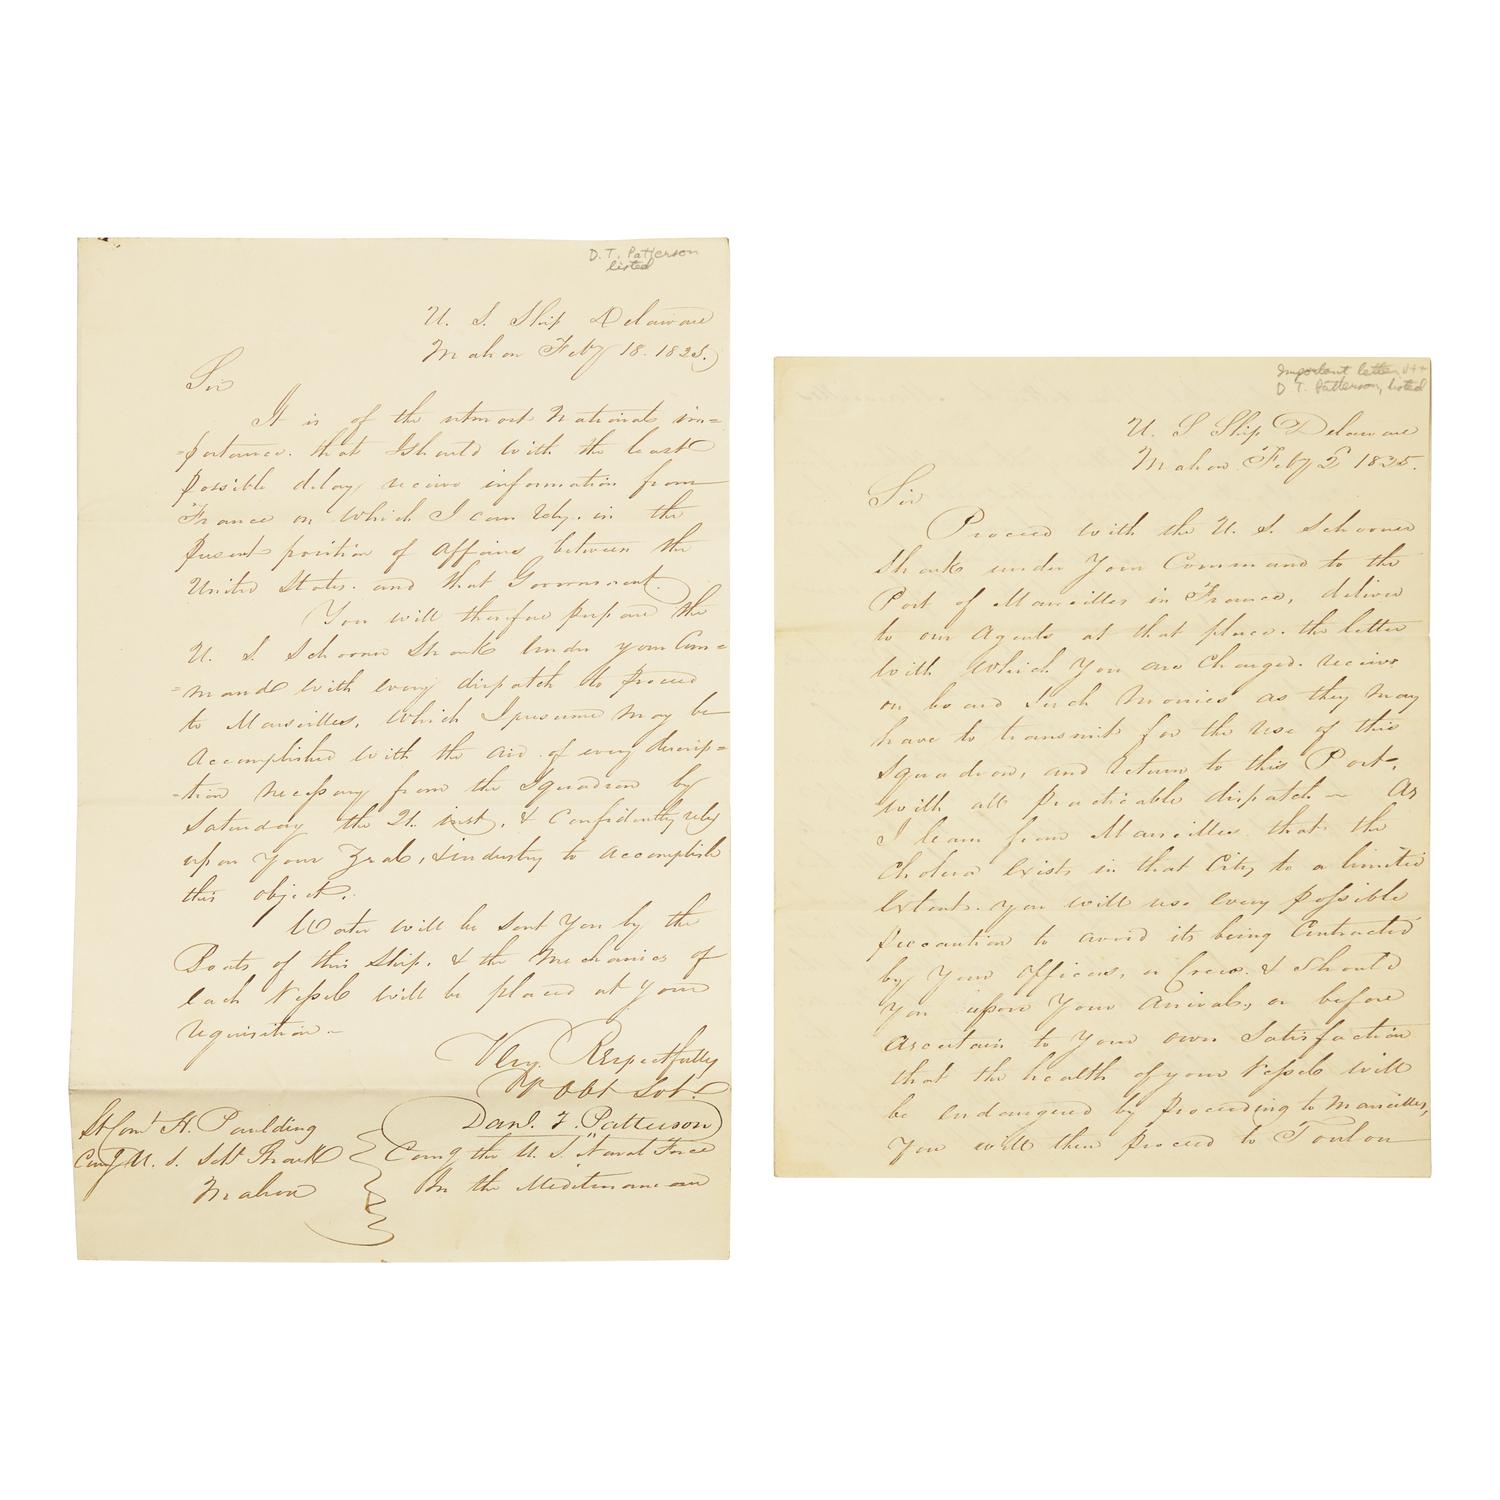 D. T. Patterson
listed
U. S. Ship Delaware
Mahon Feby 18. 1835.
Sir
It is of the utmost National im=
=portance. that I should with the least
possible delay receive information from
France on which I can rely. in the
present position of affairs between the
United States. and that Government.
You will therefore prepare the
U. S. Schooner Shark under your Com=
=mand with every dispatch to proceed
to Marseilles, which I presume may be
accomplished with the aid of every descrip=
=tion necessary from the Squadron by
Saturday the 21. inst, & confidently rely
upon your Zeal, & industry to accomplish
this object.
Water will be sent you by the
Boats of this Ship. & the Mechanics of
each Vessel will be placed at your
requisition -
Very Respectfully
Yr Obt Svt.
Danl. T. Patterson
Lt Comt H. Paulding
Comg the U. S. Naval Force
Comg U. S. Schr Shark
In the Mediterranean
Mahon
Important letter
D T. Patterson, listed
U. S Ship Delaware
Mahon Feby 2d 1835.
Sir
Proceed with the U. S. Schooner
Shark under Your Command to the
Port of Marseilles in France, deliver
to our Agents at that place. the letter
with which You are Charged. receive
on board such Monies as they May
have to transmit for the use of this
Squadron, and return to this Port.
with all practicable dispatch - As
I learn from Marseilles that the
Cholera exists in that City to a limited
extent. you will use every possible
precaution to avoid its being Contracted
by Your Officers, or Crew. & Should
You upon Your arrival, or before
ascertain to Your own satisfaction
that the health of your Vessel will
be endangered by proceeding to Marseilles,
You will then proceed to Toulon